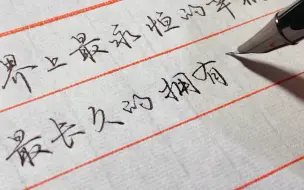 界上最永恒的幸
最长久的拥有